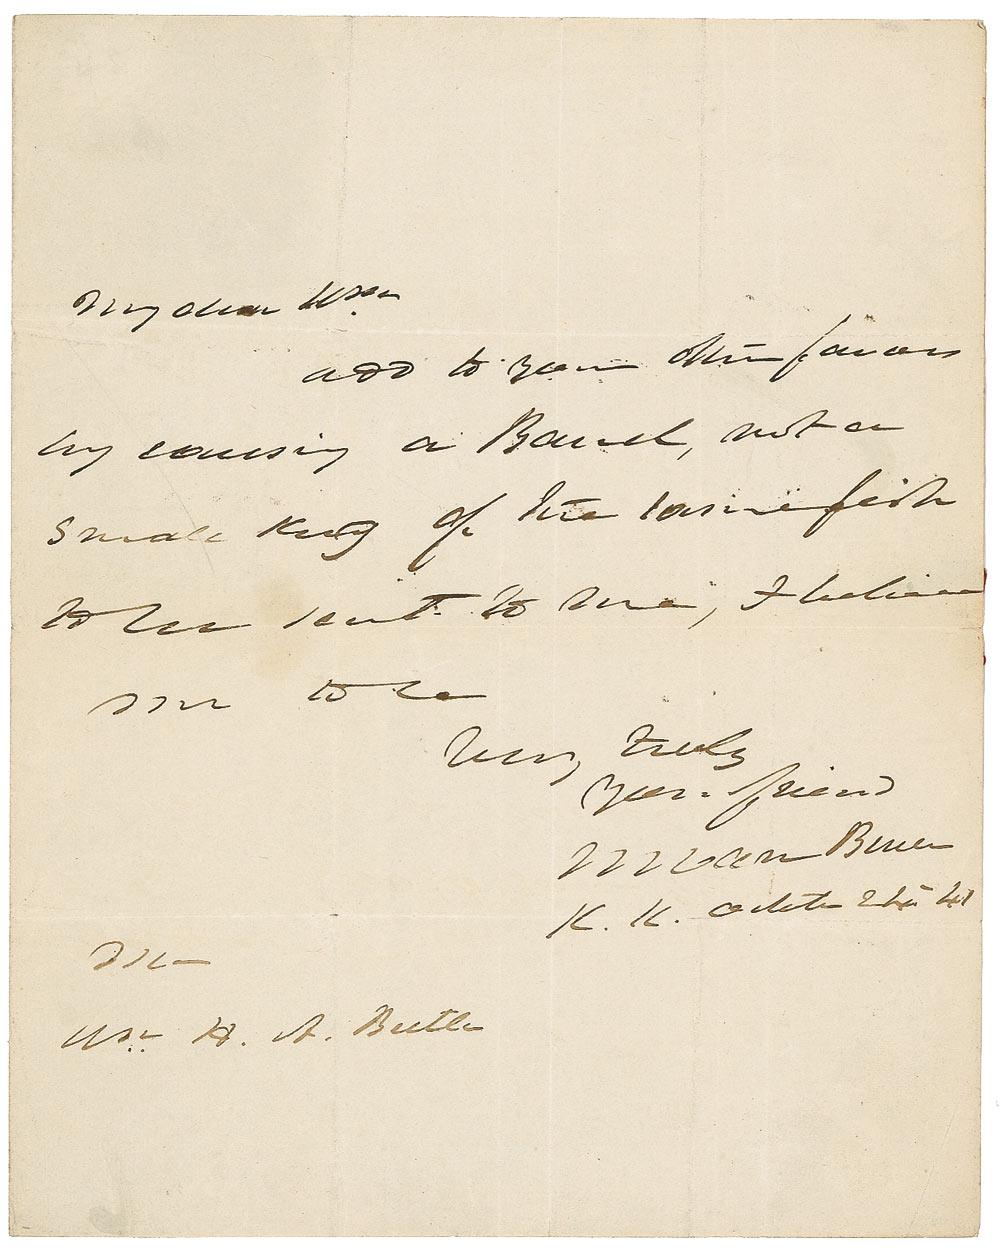 My dear Wm
add to your other favors
by causing a Barrel, not a
small Keg of the same fish
to be sent to me, & believe
me to be
Very truly
Your friend
M Van Buren
K. K. 41
Wm H. A. Butler